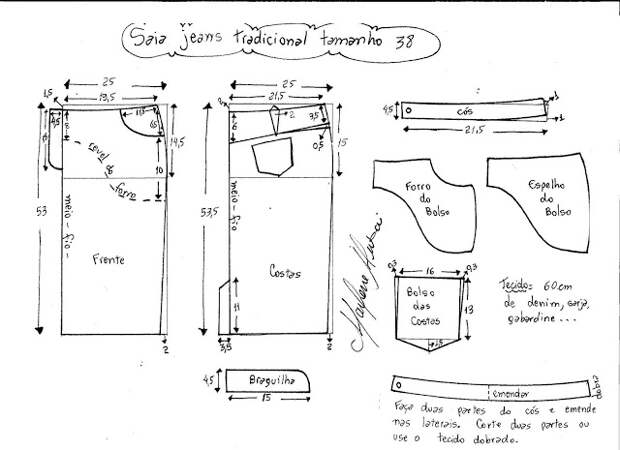 Saia jeans tradicional tamanho 38
25
19,5
1,5
4,5
14,5
10
nivel do
forro
meio - fio -
53
Frente
2
25
21,5
2
2
3,5
0,5
15
meio - fio
53,5
Costas
11
3,5
2
4,5
cós
1
1
21,5
Forro
do
Bolso
Espelho
do
Bolso
0,3
16
0,3
Bolso
das
Costas
13
Tecido= 60cm
de denim, sarja,
gabardine...
Braguilha
4,5
15
emendar
dobra
Faça duas partes do cós e emende
nas laterais. Corte duas partes ou
use o tecido dobrado.